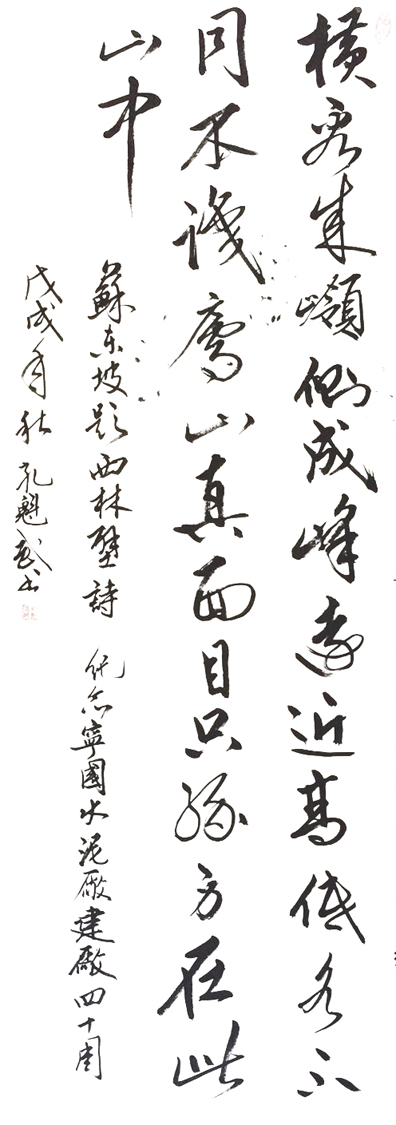 橫看成嶺側成峰遠近高低各不
同不識廬山真面目只緣身在此
山中
蘇東坡題西林壁詩 紀念寧國水泥廠建廠四十周
戊戌年秋 孔魁武书